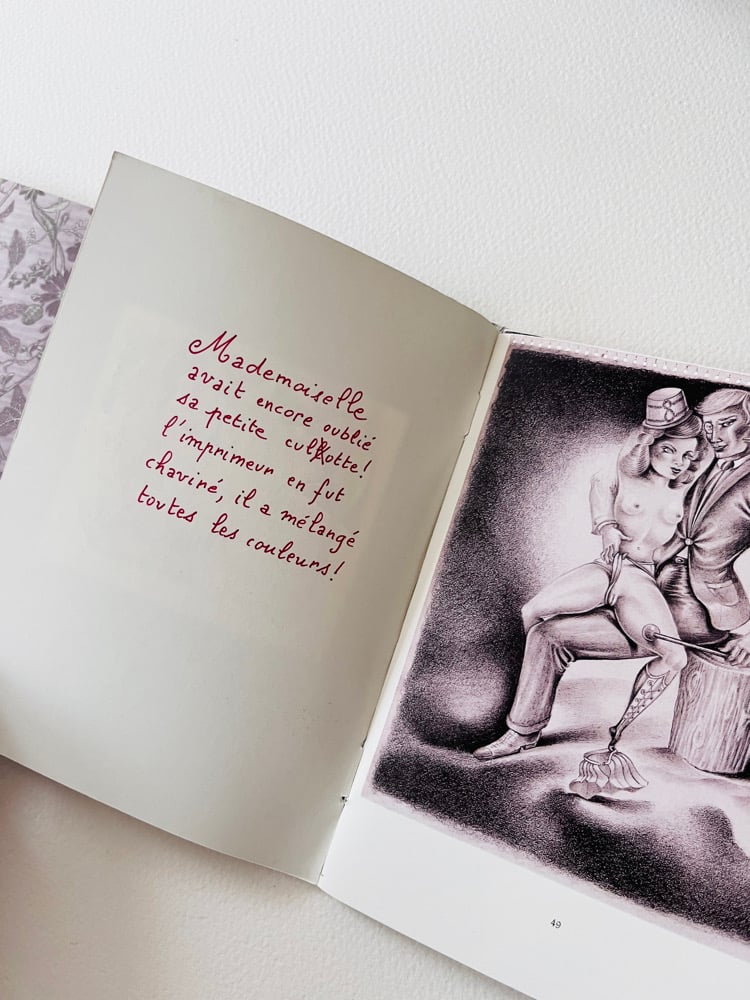 Mademoiselle
avait encore oublié
sa petite culotte!
l'imprimeur en fut
chaviré, il a mélangé
toutes les couleurs!
49